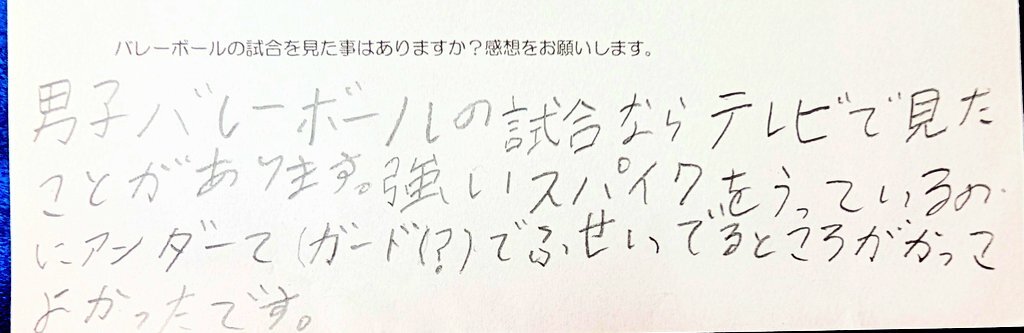 バレーボールの試合を見た事はありますか?感想をお願いします。
男子バレーボールの試合ならテレビで見た
ことがあります。強いスパイクをうっているの
にアンダーて(ガード(?)でふせいってるところがかっこ
よかったです。